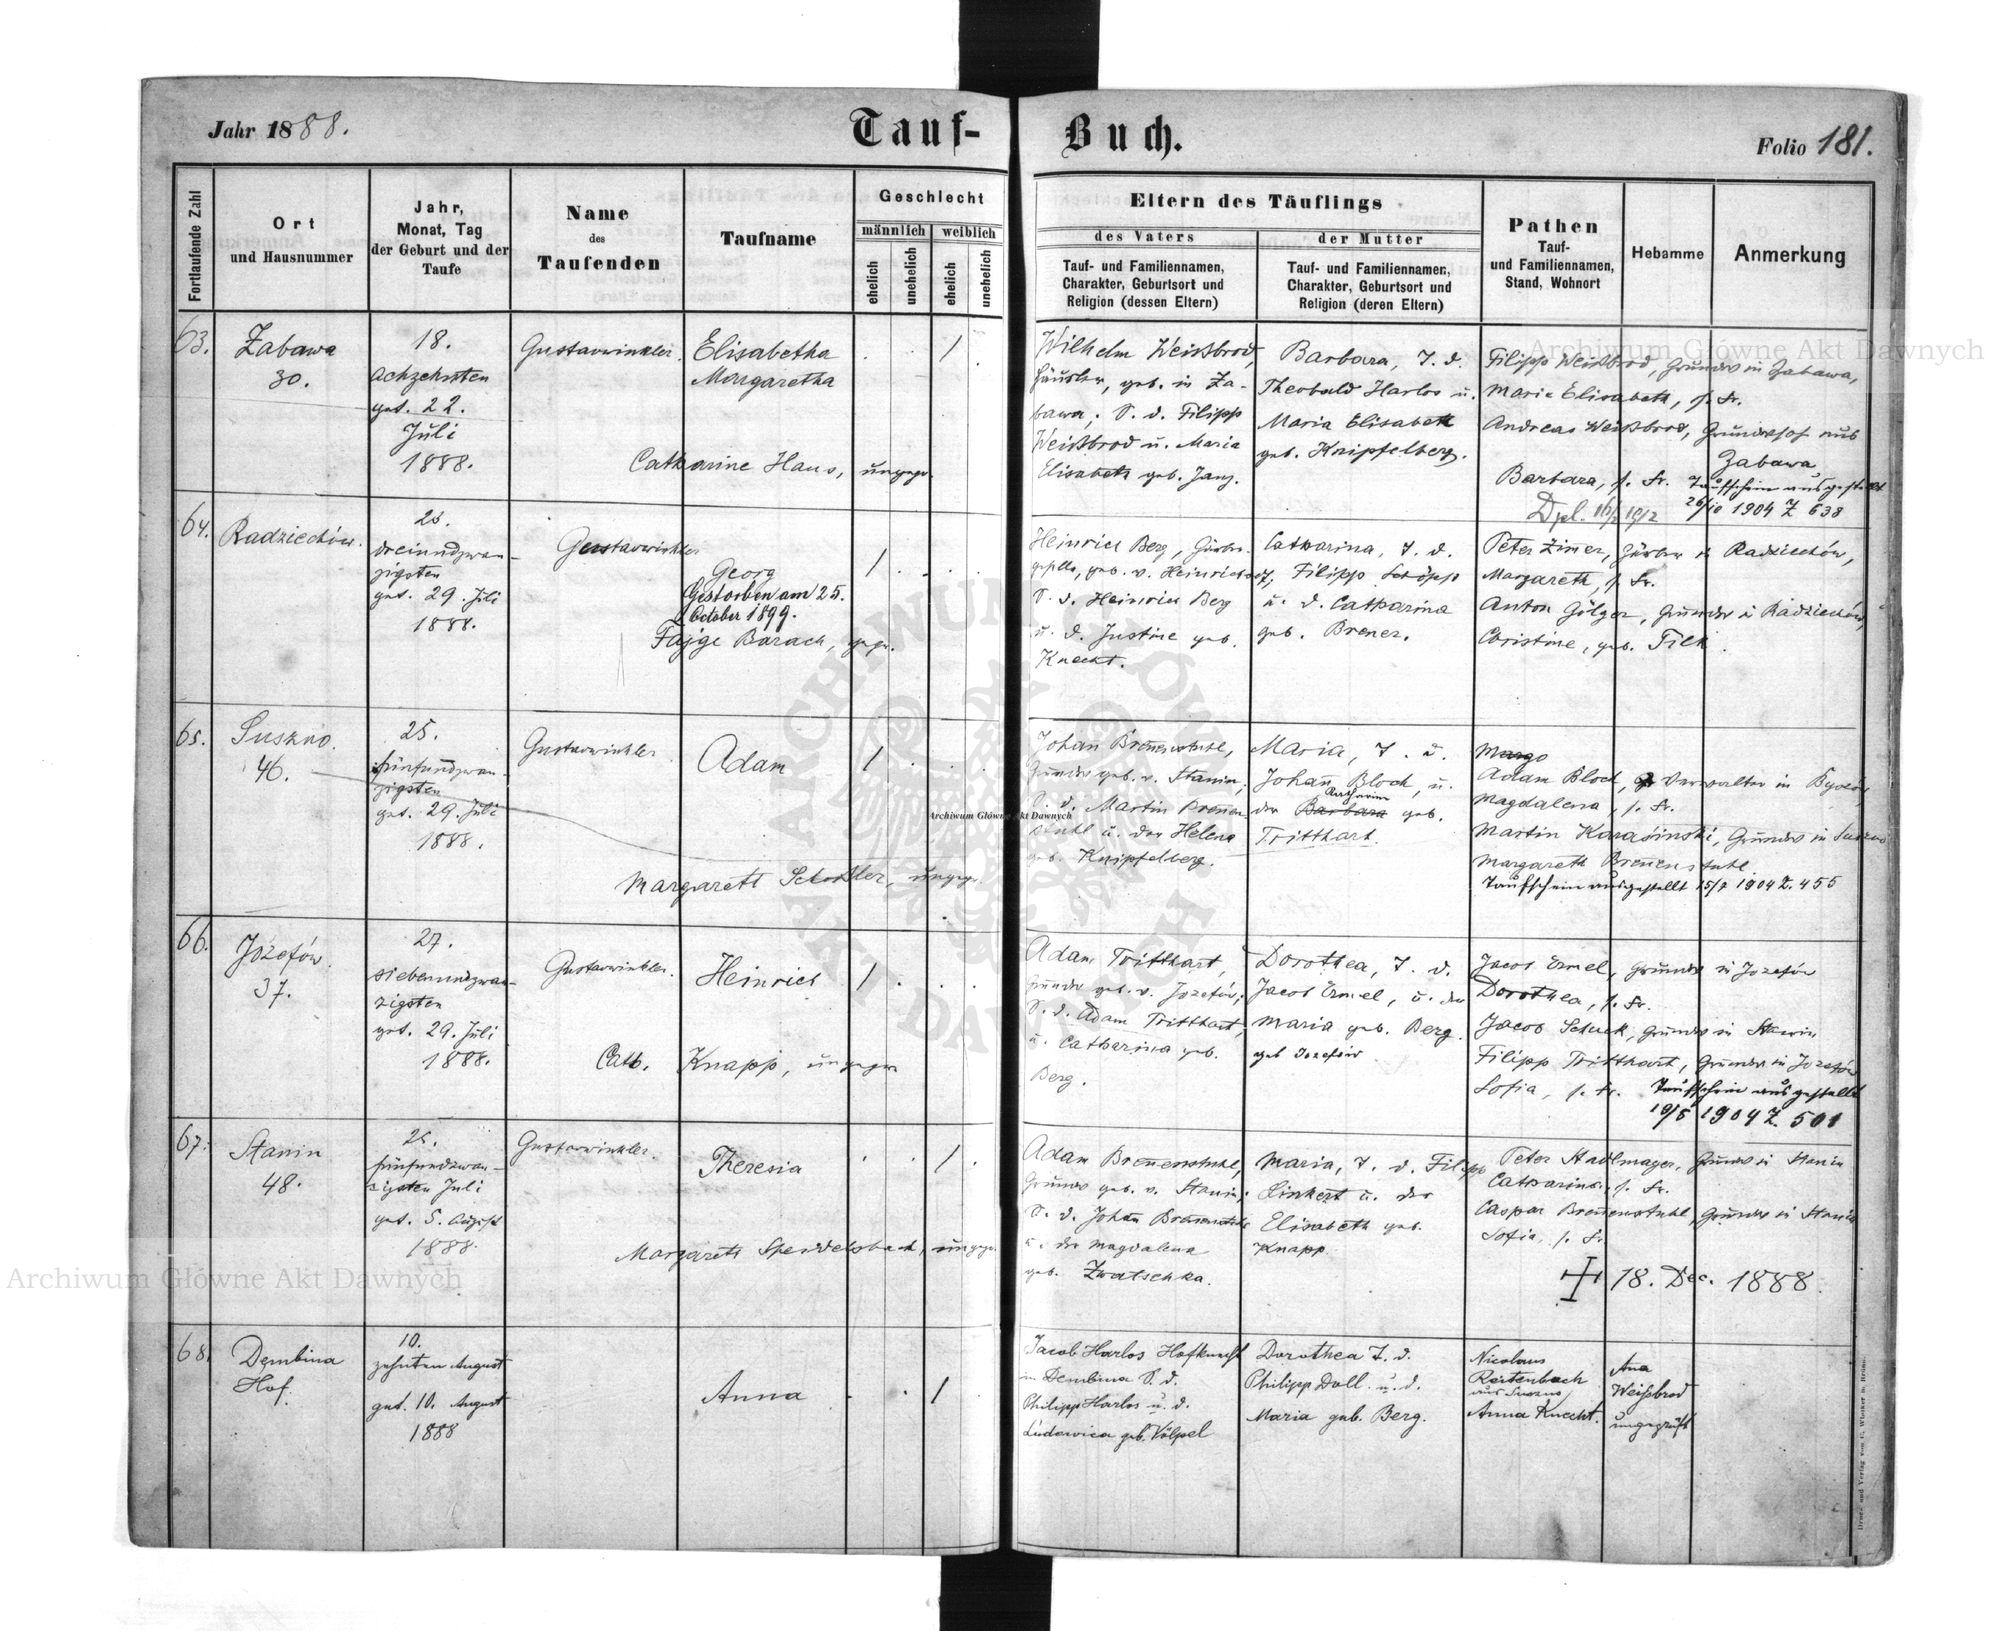 Jahr 1888.
Tauf-Buch.
Folio 181.
Fortlaufende Zahl
Ort
und Hausnummer
Jahr,
Monat, Tag
der Geburt und der
Taufe
Name
des
Taufenden
Taufname
Geschlecht
männlich
weiblich
ehelich
unehelich
ehelich
unehelich
Eltern des Täuflings
des Vaters
Tauf- und Familiennamen,
Charakter, Geburtsort und
Religion (dessen Eltern)
der Mutter
Tauf- und Familiennamen,
Charakter, Geburtsort und
Religion (deren Eltern)
Pathen
Tauf-
und Familiennamen,
Stand, Wohnort
Hebamme
Anmerkung
63.
Zabawa
30.
18.
achzehnten
get. 22.
Juli
1888.
Gustav Winkler.
Elisabetha
Margaretha
/
Catharine Haus, ungepr.
Wilhelm Weißbrod,
Häusler, geb. in Za-
bawa, S. d. Filipp
Weißbrod u. Maria
Elisabeth geb. Janz.
Barbara, T. d.
Theobald Harlos u.
Maria Elisabeth
geb. Knipfelberg.
Filipp Weißbrod, Grundw in Zabawa,
Marie Elisabeth, s. Fr.
Andreas Weißbrod, aus
Zabawa
Barbara, s. Fr.
Taufschein ausgestellt
26/10 1904 Z 638
Dpl. 16/2 1912
64.
Radziechów.
23.
dreiundzwan-
zigsten
get. 29. Juli
1888.
Gustav Winkler
Georg
Gestorben am 25.
October 1899.
Fajge Barach, gepr.
/
Heinrich Berg,
geb. v. Heinrichsdf,
S. d. Heinrich Berg
u. d. Justine geb.
Knecht.
Catharina, T. d.
Filipp Schöpp
u. d. Catharina
geb. Brener.
Peter Zimer, in Radziechów,
Margareth, s. Fr.
Anton Gölger, Grundw in Radziechów,
Christine, geb. Filk.
65.
Suszno.
46.
25.
fünfundzwan-
zigsten
get. 29. Juli
1888.
Gustav Winkler
Adam
/
Margareth Schoßler, ungepr.
Johan Breñenstuhl,
Grundw geb. v. Stanin,
S. d. Martin Breñen
stuhl u. der Helena
geb. Knipfelberg.
Maria, T. d.
Johañ Bloch, u.
Katharina
der Barbara geb.
Tritthart.
Margo
Adam Bloch, Verwalter in Byszów,
Magdalena, s. Fr.
Martin Karasinski, Grundw in Suszno
Margareth Breñenstuhl
Taufschein ausgestellt 15/7 1904 Z. 455
66.
Józefów.
37.
27.
siebenundzwan-
zigsten
get. 29. Juli
1888.
Gustav Winkler.
Heinrich
/
Cath. Knapp, ungepr
Adam Tritthart,
Grundw geb. v. Jozefów,
S. d. Adam Tritthart,
u. Catharina geb.
Berg.
Dorothea, T. d.
Jacob Ermel, u. der
Maria geb. Berg.
geb Jozefów
Jacob Ermel, Grundw in Jozefów
Dorothea, s. Fr.
Jacob Schuck, Grundw in Stanin
Filipp Tritthart, Grundw in Jozefów
Sofia, s. Fr.
Taufschein ausgestellt
10/5 1904 Z. 501
67.
Stanin
48.
25.
fünfundzwan-
zigsten Juli
get. 5. August
1888.
Gustav Winkler.
Theresia
/
Margareth Speidelsbach, ungepr.
Adam Breñenstuhl,
Grundw geb. v. Stanin;
S. d. Johañ Breñenstuhl
u. der Magdalena
geb. Zwatschka.
Maria, T. d. Filipp
Linkert u. der
Elisabeth geb.
Knapp.
Peter Stadlmayer, Grundw in Stanin
Catharina, s. Fr.
Caspar Breñenstuhl, Grundw in Stanin
Sofia, s. Fr.
18. Dec. 1888.
68.
Dembina
Hof.
10.
zehnten August
get. 10. August
1888
Anna
/
Jacob Harlos Hofknecht
in Dembina S. d.
Philipp Harlos u. d.
Ludowica geb. Völpel
Dorothea T. d.
Philipp Doll u. d.
Maria geb. Berg.
Nicolaus
Reitenbach
aus Suszno,
Anna Knecht.
Ana
Weißbrod
ungeprüft
Archiwum Główne Akt Dawnych
Archiwum Główne Akt Dawnych
Archiwum Główne Akt Dawnych